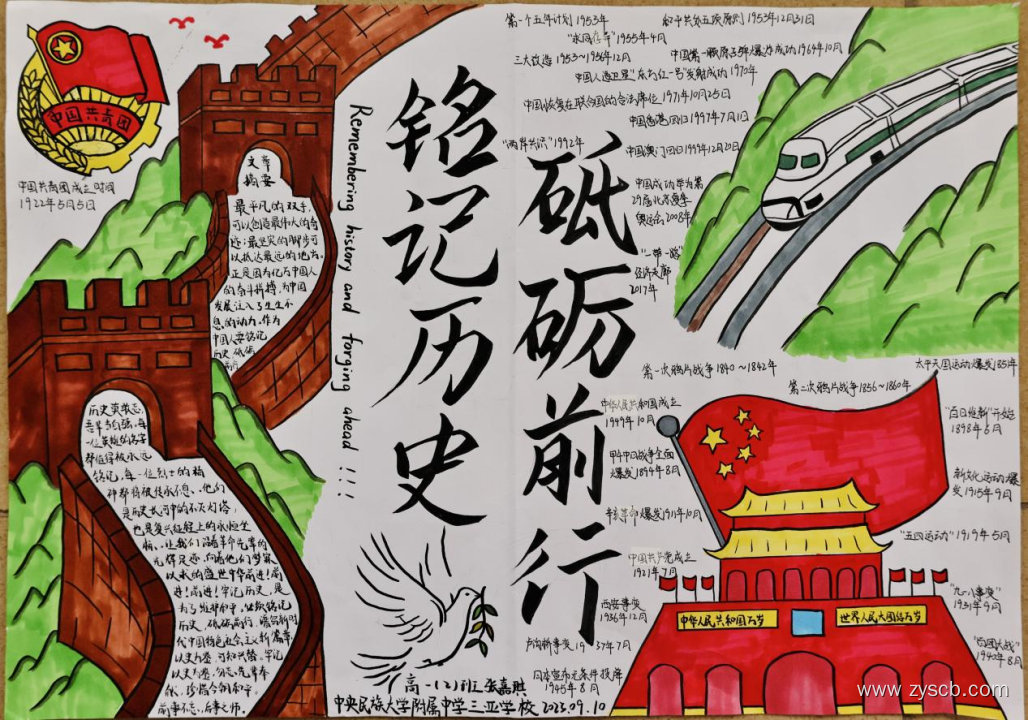 中国共青团
中国共青团成立时间
1922年5月5日
文章
摘要
最平凡的双手,
可以创造最伟大的奇
迹;最坚实的脚步可
以抵达最远的地方。
正是因为亿万中国人
的奋斗拼搏,为中国
发展注入了生生不
息的动力。作为
中国人要铭记
历史 砥砺
前行
历史英敢忘,
吾辈当自强。每
一位英雄的名字
都值得被永远
铭记,每一位烈士的精
神都将被传承不息、他们
是历史长河中的不灭灯塔,
也是复兴征程上的永恒坐
标、让我们沿着革命先辈的
光辉足迹、向着他们梦寐
以求的盛世中华前进!前
进!前进!牢记历史,是
为了维护和平,
历史,砥砺前行,
代中国特色社会主义新篇章
以史为鉴 可知兴替。牢记
前事不忘,后事之师。
Remembering history and forging ahead!!!
铭记历史
砥砺前行
第一个五年计划 1953年
和平共处五项原则 1953年12月31日
"求同存异" 1955年4月
三大改造 1953~1956年12月
中国第一颗原子弹爆炸成功 1964年10月
中国人造卫星"东方红一号"发射成功 1970年
中国恢复在联合国的合法席位 1971年10月25日
中国香港回归 1997年7月1日
"两岸共识" 1992年
中国澳门回归 1999年12月20日
中国成功举办第
29届北京夏季
奥运会 2008年
"一带一路"
经济走廊
2017年
第一次鸦片战争 1840~1842年
太平天国运动爆发1851年
第二次鸦片战争 1856~1860年
中华人民共和国成立
1949年10月
"百日维新"开始
1898年6月
甲午中日战争全面
爆发1894年8月
新文化运动爆
发1915年9月
辛亥革命爆发1911年10月
"五四运动"1919年5月
中国共产党成立
1921年7月
"九一八事变"
1931年9月
西安事变
1936年12月
卢沟桥事变 1937年7月
"百团大战"
1940年8月
日本宣布无条件投降
1945年8月
中华人民共和国万岁
世界人民大团结万岁
高一(2)班 张嘉琪
中央民族大学附属中学三亚学校 2023.09.10
www.zyscb.com